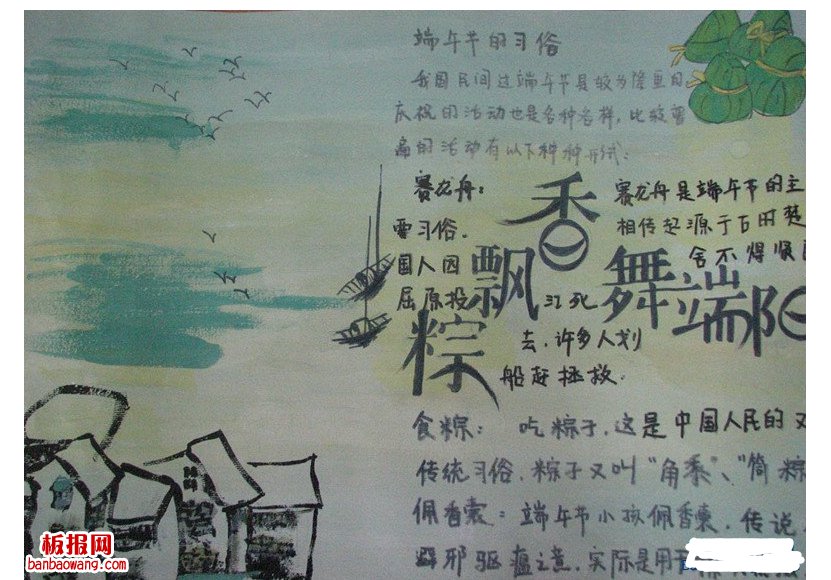 端午节的习俗
我国民间过端午节是较为隆重的
庆祝的活动也是各种各样,比较普
遍的活动有以下种种形式:
赛龙舟: 赛龙舟是端午节的主
要习俗。 相传起源于古时楚
国人因 舍不得贤
屈原投 江死
去,许多人划
船赶拯救.
粽飘香舞端阳
食粽: 吃粽子,这是中国人民的又
传统习俗,粽子又叫“角黍”、“筒粽
佩香囊:端午节小孩佩香囊,传说
辟邪驱瘟之意,实际是用于
板报网
banbaowang.com